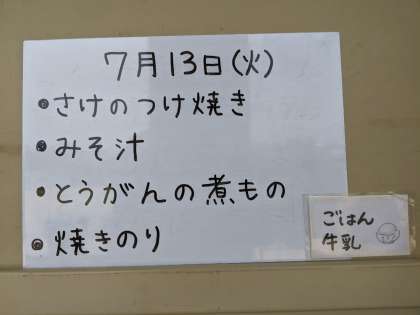 7月13日(火)
●さけのつけ焼き
●みそ汁
●とうがんの煮もの
●焼きのり
ごはん
牛乳